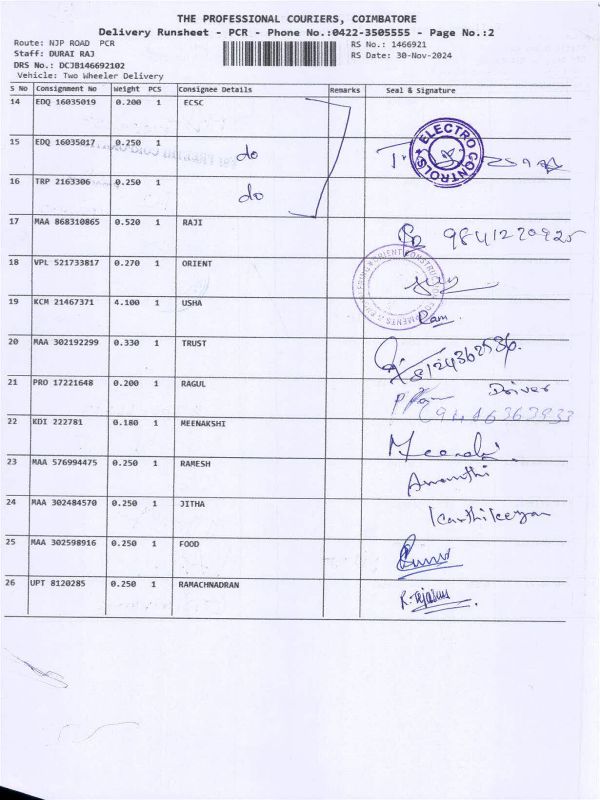 THE PROFESSIONAL COURIERS, COIMBATORE
Delivery Runsheet - PCR - Phone No.:0422-3505555 - Page No.:2
Route: NJP ROAD PCR
RS No.: 1466921
Staff: DURAI RAJ
RS Date: 30-Nov-2024
DRS No.: DCJB146692102
Vehicle: Two Wheeler Delivery
S No Consignment No Weight PCS Consignee Details Remarks Seal & Signature
14 EDQ 16035019 0.200 1 ECSC
15 EDQ 16035017 0.250 1 do
ELECTRO CONTROLS
16 TRP 2163306 0.250 1 do
17 MAA 868310865 0.520 1 RAJI 9841220925
18 VPL 521733817 0.270 1 ORIENT
ORIENT CONSTRUCTION
19 KCM 21467371 4.100 1 USHA Ram
20 MAA 302192299 0.330 1 TRUST
21 PRO 17221648 0.200 1 RAGUL Driver
22 KDI 222781 0.180 1 MEENAKSHI Meenakshi
23 MAA 576994475 0.250 1 RAMESH
24 MAA 302484570 0.250 1 JITHA Karthikeyan
25 MAA 302598916 0.250 1 FOOD
26 UPT 8120285 0.250 1 RAMACHNADRAN R.Tejasus